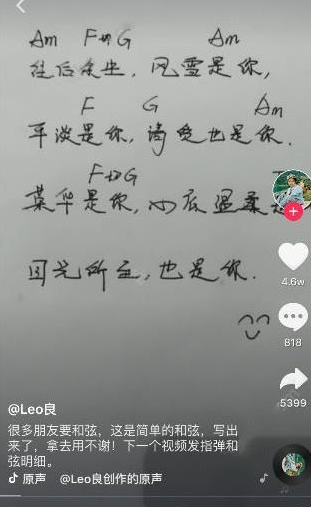 Am F G Am
往后余生，风雪是你，
F G Am
平淡是你，清贫也是你.
F G
荣华是你，心底温柔
目光所至，也是你.
4.6w
818
5399
@Leo良
很多朋友要和弦，这是简单的和弦，写出
来了，拿去用不谢！下一个视频发指弹和
弦明细。
原声 @Leo良创作的原声